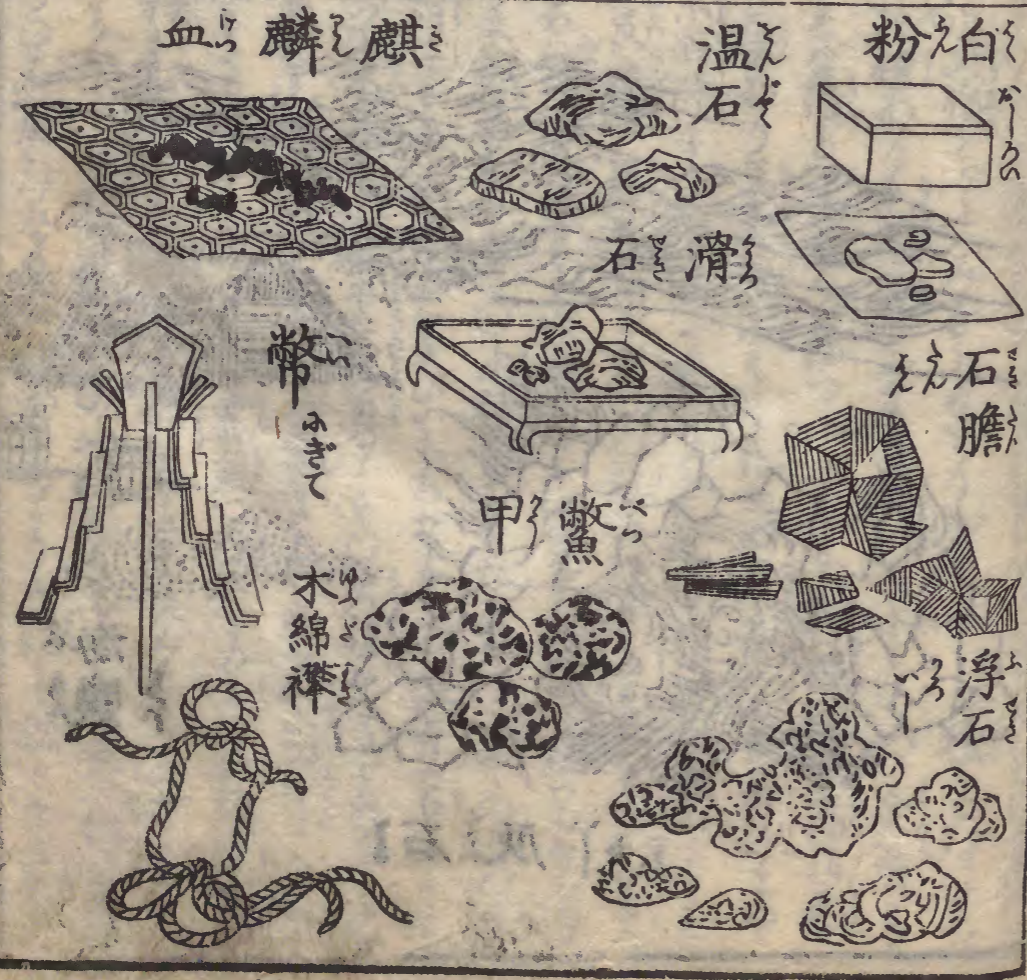 白粉
はくふん
おしろい
温石
をんじやく
麒麟血
きりんけつ
滑石
くわつせき
石膽
せきたん
幣
へい
にぎて
鼈甲
べつかう
木綿襷
ゆふだすき
浮石
ふせき
かるいし